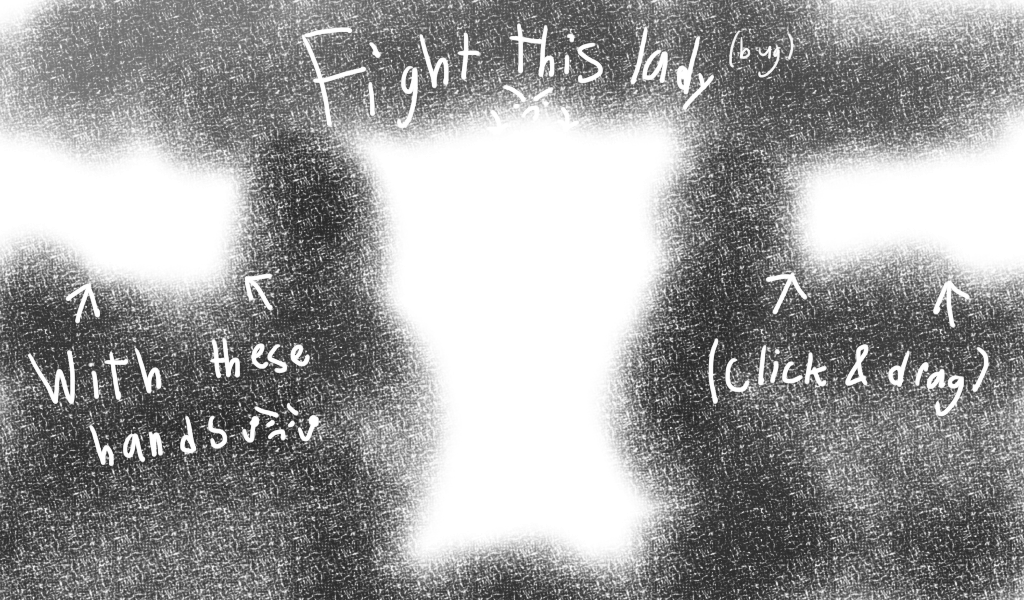 Fight this lady (bug)
With these
hands
(Click & drag)